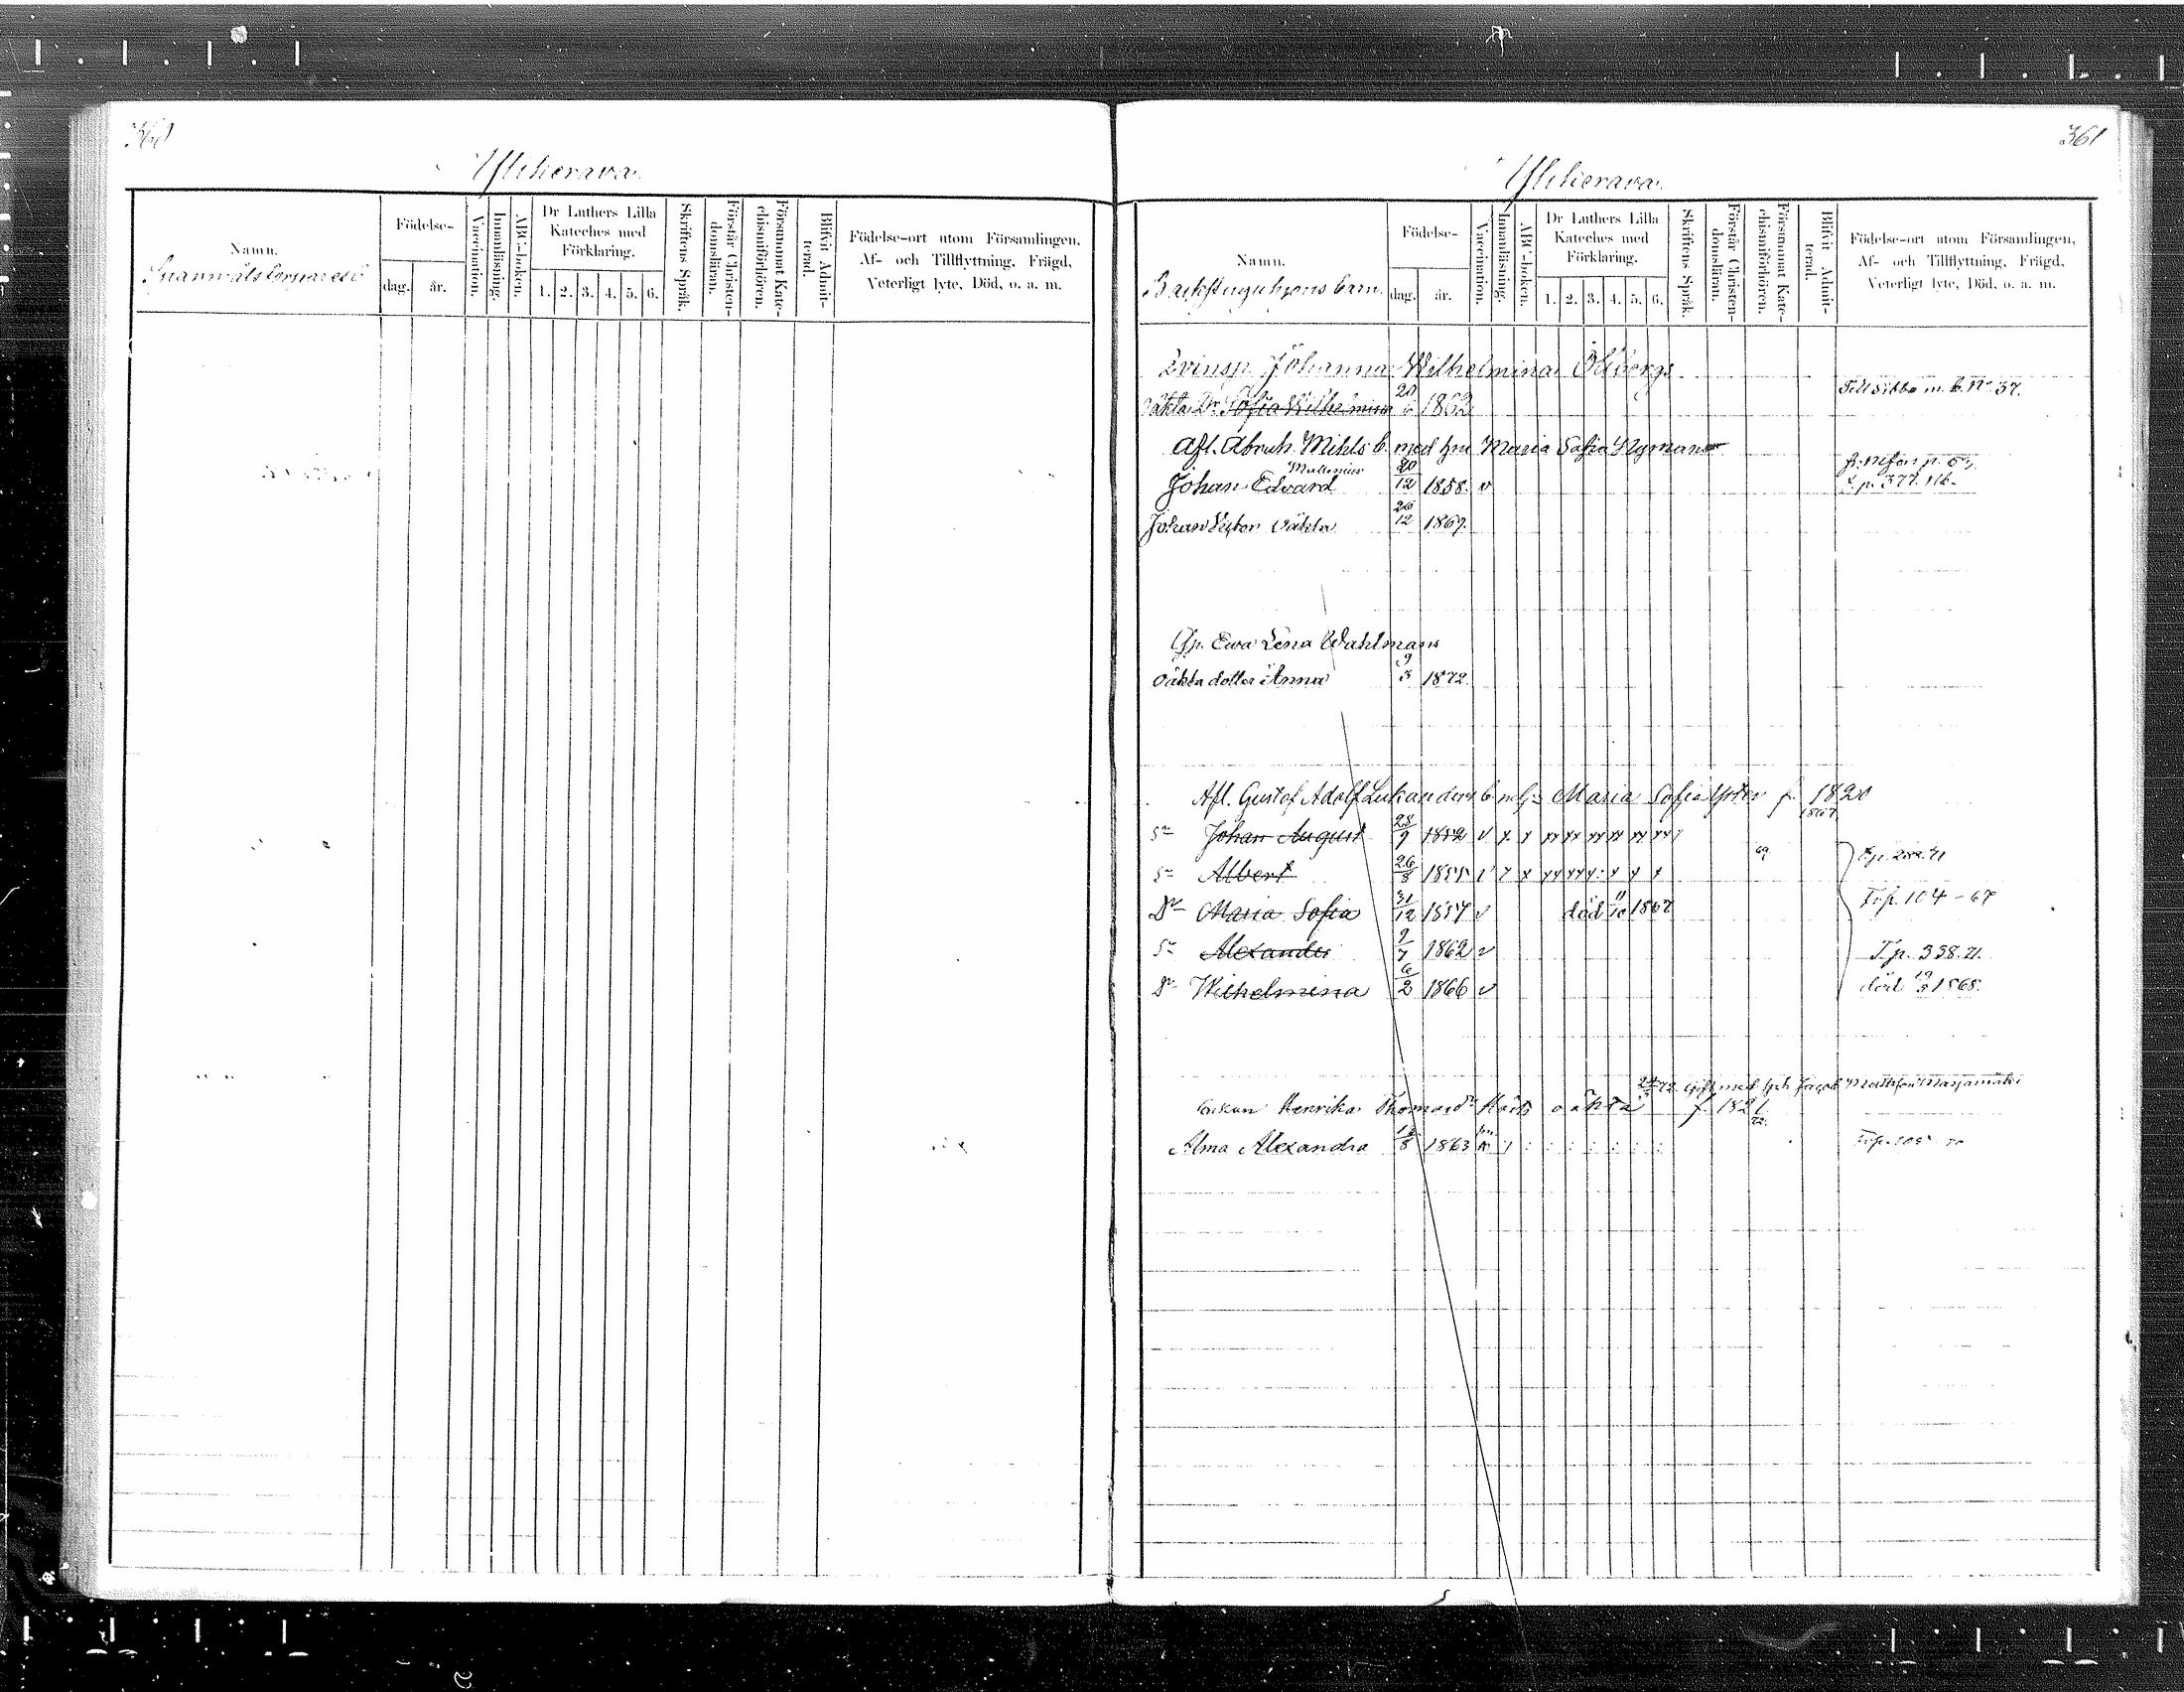 360
Ylikerava.
Namn.
Födelse-
dag. år.
Vaccination.
Innanläsning.
ABC-boken.
Dr Luthers Lilla Kateches med Förklaring.
1. 2. 3. 4. 5. 6.
Skriftens Språk.
Förstår Christen-domsläran.
Försummat Kate-chismiförhören.
Blifvit Admit-terad.
Födelse-ort utom Församlingen,
Af- och Tillflyttning, Frägd,
Veterligt lyte, Död, o. a. m.
361
Ylikerava.
Namn.
Backstuguhjons barn.
Födelse-
dag. år.
Vaccination.
Innanläsning.
ABC-boken.
Dr Luthers Lilla Kateches med Förklaring.
1. 2. 3. 4. 5. 6.
Skriftens Språk.
Förstår Christen-domsläran.
Försummat Kate-chismiförhören.
Blifvit Admit-terad.
Födelse-ort utom Församlingen,
Af- och Tillflyttning, Frägd,
Veterligt lyte, Död, o. a. m.
Qvinsp. Johanna Wilhelmina Ölbergs
oäkta Dr Sofia Wilhelmina 20 1862 Till Sibbo m. b. No 37.
Afl. Abrah. Mihls b. med hu Maria Sofia Nyman
Johan Edvard 20/12 1858. v p. 377.
Johan Victor oäkta 26/12 1869.
Ewa Lena Wahlmans
oäkta dotter Anna 9/3 1872.
Afl. Gustof Adolf Lukanders b m Maria Sofia f. 1820
Sn Johan August 28/9 1852 v x x xx xx xx xx xx xx 1867
Sn Albert 26/8 1855 v x x xx xxx x x x 69
Dr Maria Sofia 31/12 1857 v död 11/10 1867 104-67
Sn Alexander 9/7 1862 v T. p. 338. 71.
Dr Wilhelmina 6/2 1866 v död 19/5 1868.
Enkan Henrika Thomasdr oäkta f. 1821
Alma Alexandra 8 1863